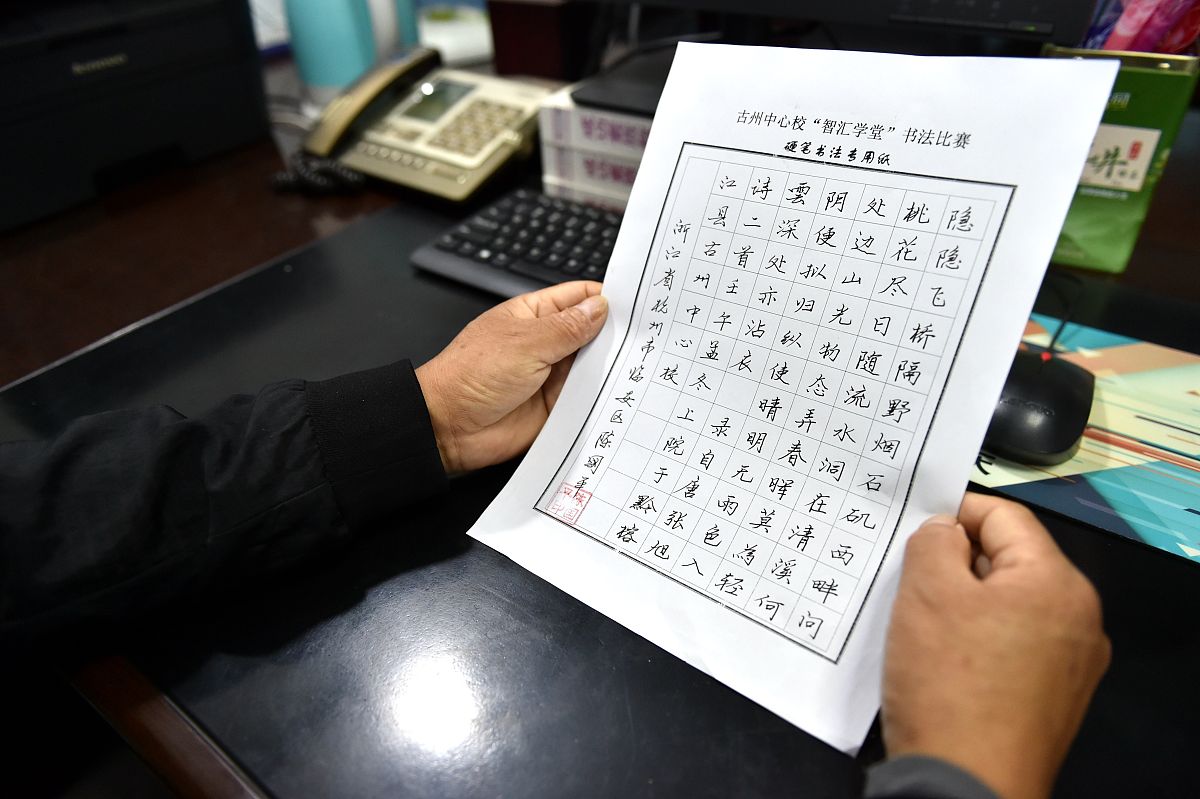 古州中心校“智汇学堂”书法比赛
硬笔书法专用纸
隐隐飞桥隔野烟石矶西畔问
桃花尽日随流水洞在清溪何
处边山光物态弄春晖莫為轻
阴便拟归纵使晴明无雨色入
雲深处亦沾衣 录自唐张旭
诗二首壬午孟冬上院于黔榕
江县古州中心校
浙江省杭州市临安区陈国平
Lenovo